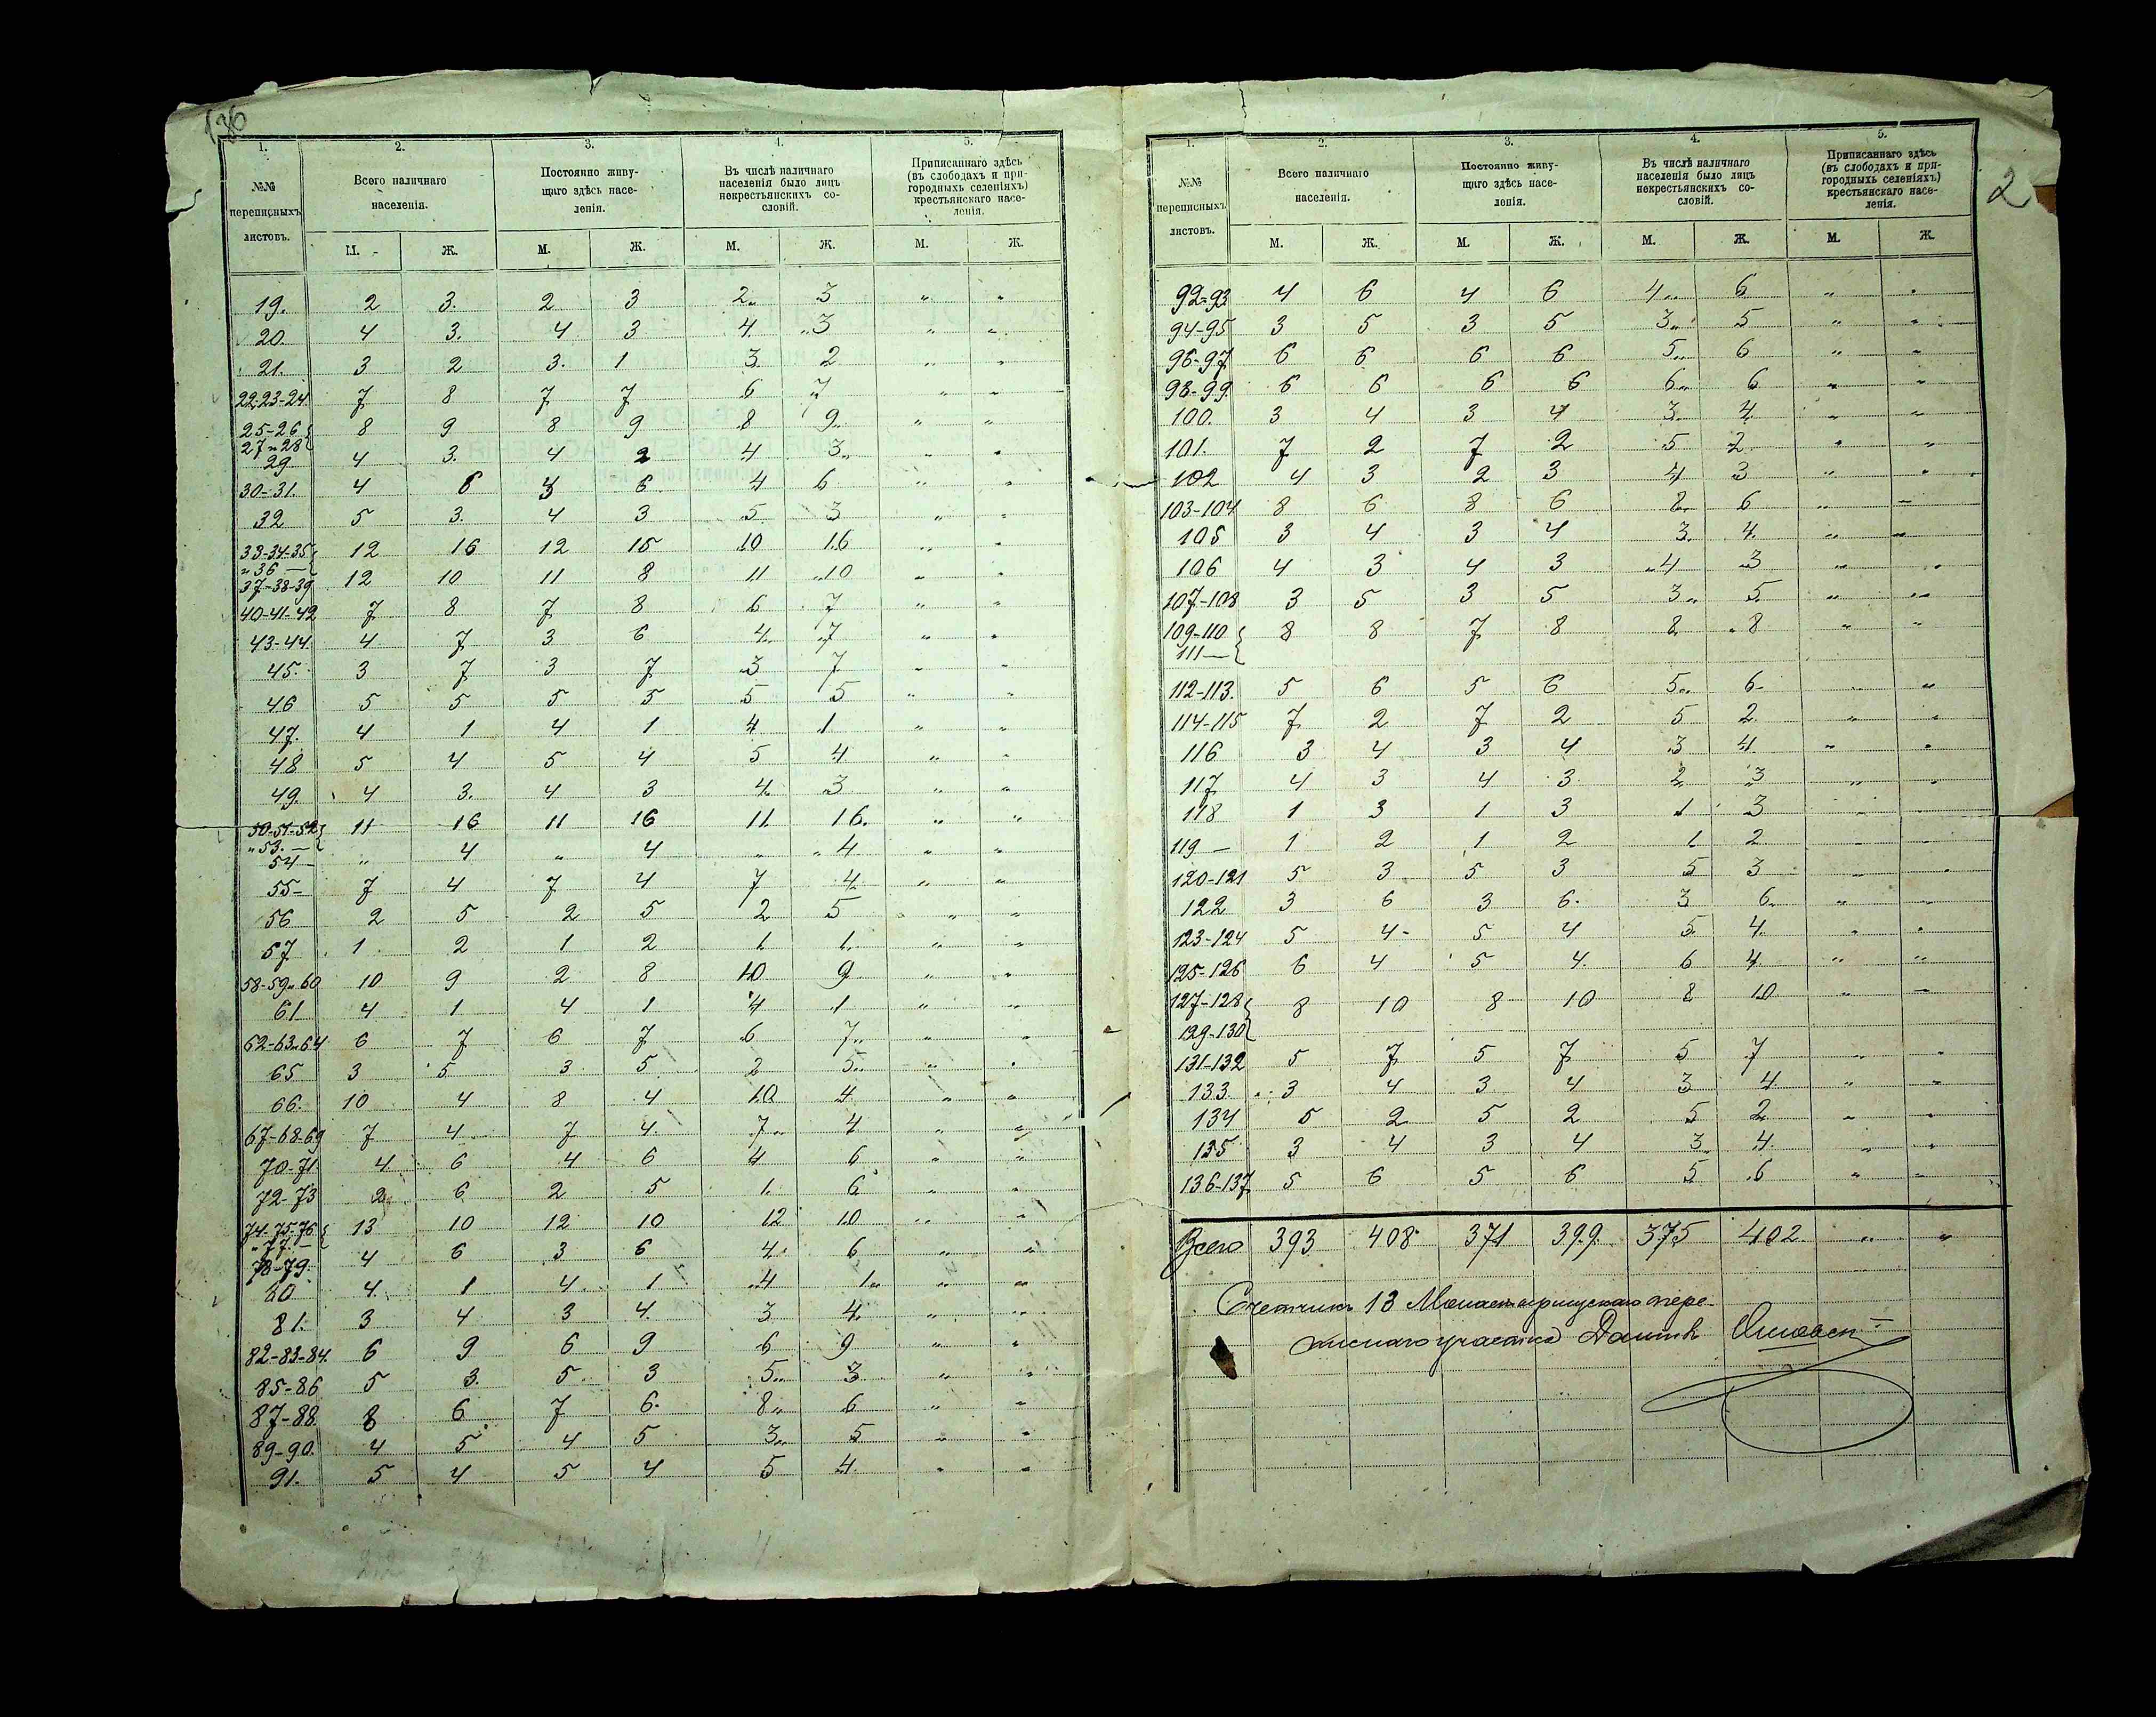 1. 2. 3. 4. 5.
№№ переписныхъ листовъ. Всего наличнаго населенія. Постоянно живущаго здѣсь населенія. Въ числѣ наличнаго населенія было лицъ некрестьянскихъ сословій. Приписаннаго здѣсь (въ слободахъ и пригородныхъ селеніяхъ) крестьянскаго населенія.
М. Ж. М. Ж. М. Ж. М. Ж.
19. 2 3. 2 3 2 3 " "
20. 4 3. 4 3 4. 3 " "
21. 3 2 3. 1 3. 2 " "
22-23-24. 7 8 7 7 6 7 " "
25-26 27-28 8 9 8 9 8 9 " "
29 4 3. 4 2 4 3 " "
30-31. 4 6 3 6 4 6 " "
32 5 3. 4 3 5 3 " "
33-34-35 " 36 — 12 16 12 15 10 16 " "
37-38-39 12 10 11 8 11 10 " "
40-41-42 7 8 7 8 6 7 " "
43-44. 4 7 3 6 4 7 " "
45. 3 7 3 7 3 7 " "
46 5 5 5 5 5 5 " "
47. 4 1 4 1 4 1 " "
48 5 4 5 4 5 4 " "
49. 4 3. 4 3 4 3 " "
50-51-52 " 53. — 11 16 11 16 11. 16. " "
54 — " 4 " 4 " 4 " "
55 — 7 4 7 4 7 4 " "
56 2 5 2 5 2 5 " "
57 1 2 1 2 1 1 " "
58-59 " 60 10 9 2 8 10 9 " "
61 4 1 4 1 4 1 " "
62-63 " 64 6 7 6 7 6 7 " "
65 3 5 3 5 2 5 " "
66. 10 4 8 4 10 4 " "
67-68-69 7 4 7 4 7 4 " "
70-71 4 6 4 6 4 6 " "
72-73 2 6 2 5 1 6 " "
74-75-76 " 77. — 13 10 12 10 12 10 " "
78-79. 4 6 3 6 4 6 " "
80 4 1 4 1 4 1 " "
81. 3 4 3 4 3 4 " "
82-83-84. 6 9 6 9 6 9 " "
85-86 5 3. 5 3 5 3 " "
87-88. 8 6 7 6 8 6 " "
89-90. 4 5 4 5 3 5 " "
91. 5 4 5 4 5 4 " "
1. 2. 3. 4. 5.
2
№№ переписныхъ листовъ. Всего наличнаго населенія. Постоянно живущаго здѣсь населенія. Въ числѣ наличнаго населенія было лицъ некрестьянскихъ сословій. Приписаннаго здѣсь (въ слободахъ и пригородныхъ селеніяхъ) крестьянскаго населенія.
М. Ж. М. Ж. М. Ж. М. Ж.
92-93 4 6 4 6 4 6 " "
94-95 3 5 3 5 3 5 " "
96-97 6 6 6 6 5 6 " "
98-99. 6 6 6 6 6 6 " "
100. 3 4 3 4 3 4 " "
101. 7 2 7 2 5 2 " "
102 4 3 2 3 4 3 " "
103-104 8 6 8 6 8 6 " "
105 3 4 3 4 3. 4. " "
106 4 3 4 3 4 3 " "
107-108 3 5 3 5 3 5 " "
109-110 111 — 8 8 7 8 8 8 " "
112-113. 5 6 5 6 5 6 " "
114-115 7 2 7 2 5 2 " "
116 3 4 3 4 3 4 " "
117 4 3 4 3 2 3 " "
118 1 3 1 3 1 3 " "
119 — 1 2 1 2 1 2 " "
120-121 5 3 5 3 5 3 " "
122 3 6 3 6 3 6 " "
123-124 5 4 5 4 5 4 " "
125-126 6 4 5 4 6 4 " "
127-128 129-130 8 10 8 10 8 10 " "
131-132 5 7 5 7 5 7 " "
133. 3 4 3 4 3 4 " "
134 5 2 5 2 5 2 " "
135 3 4 3 4 3 4 " "
136-137 5 6 5 6 5 6 " "
Всего 393 408 371 399. 375 402. " "
Счетчикъ 13 Монастырищскаго пере-
писнаго участка